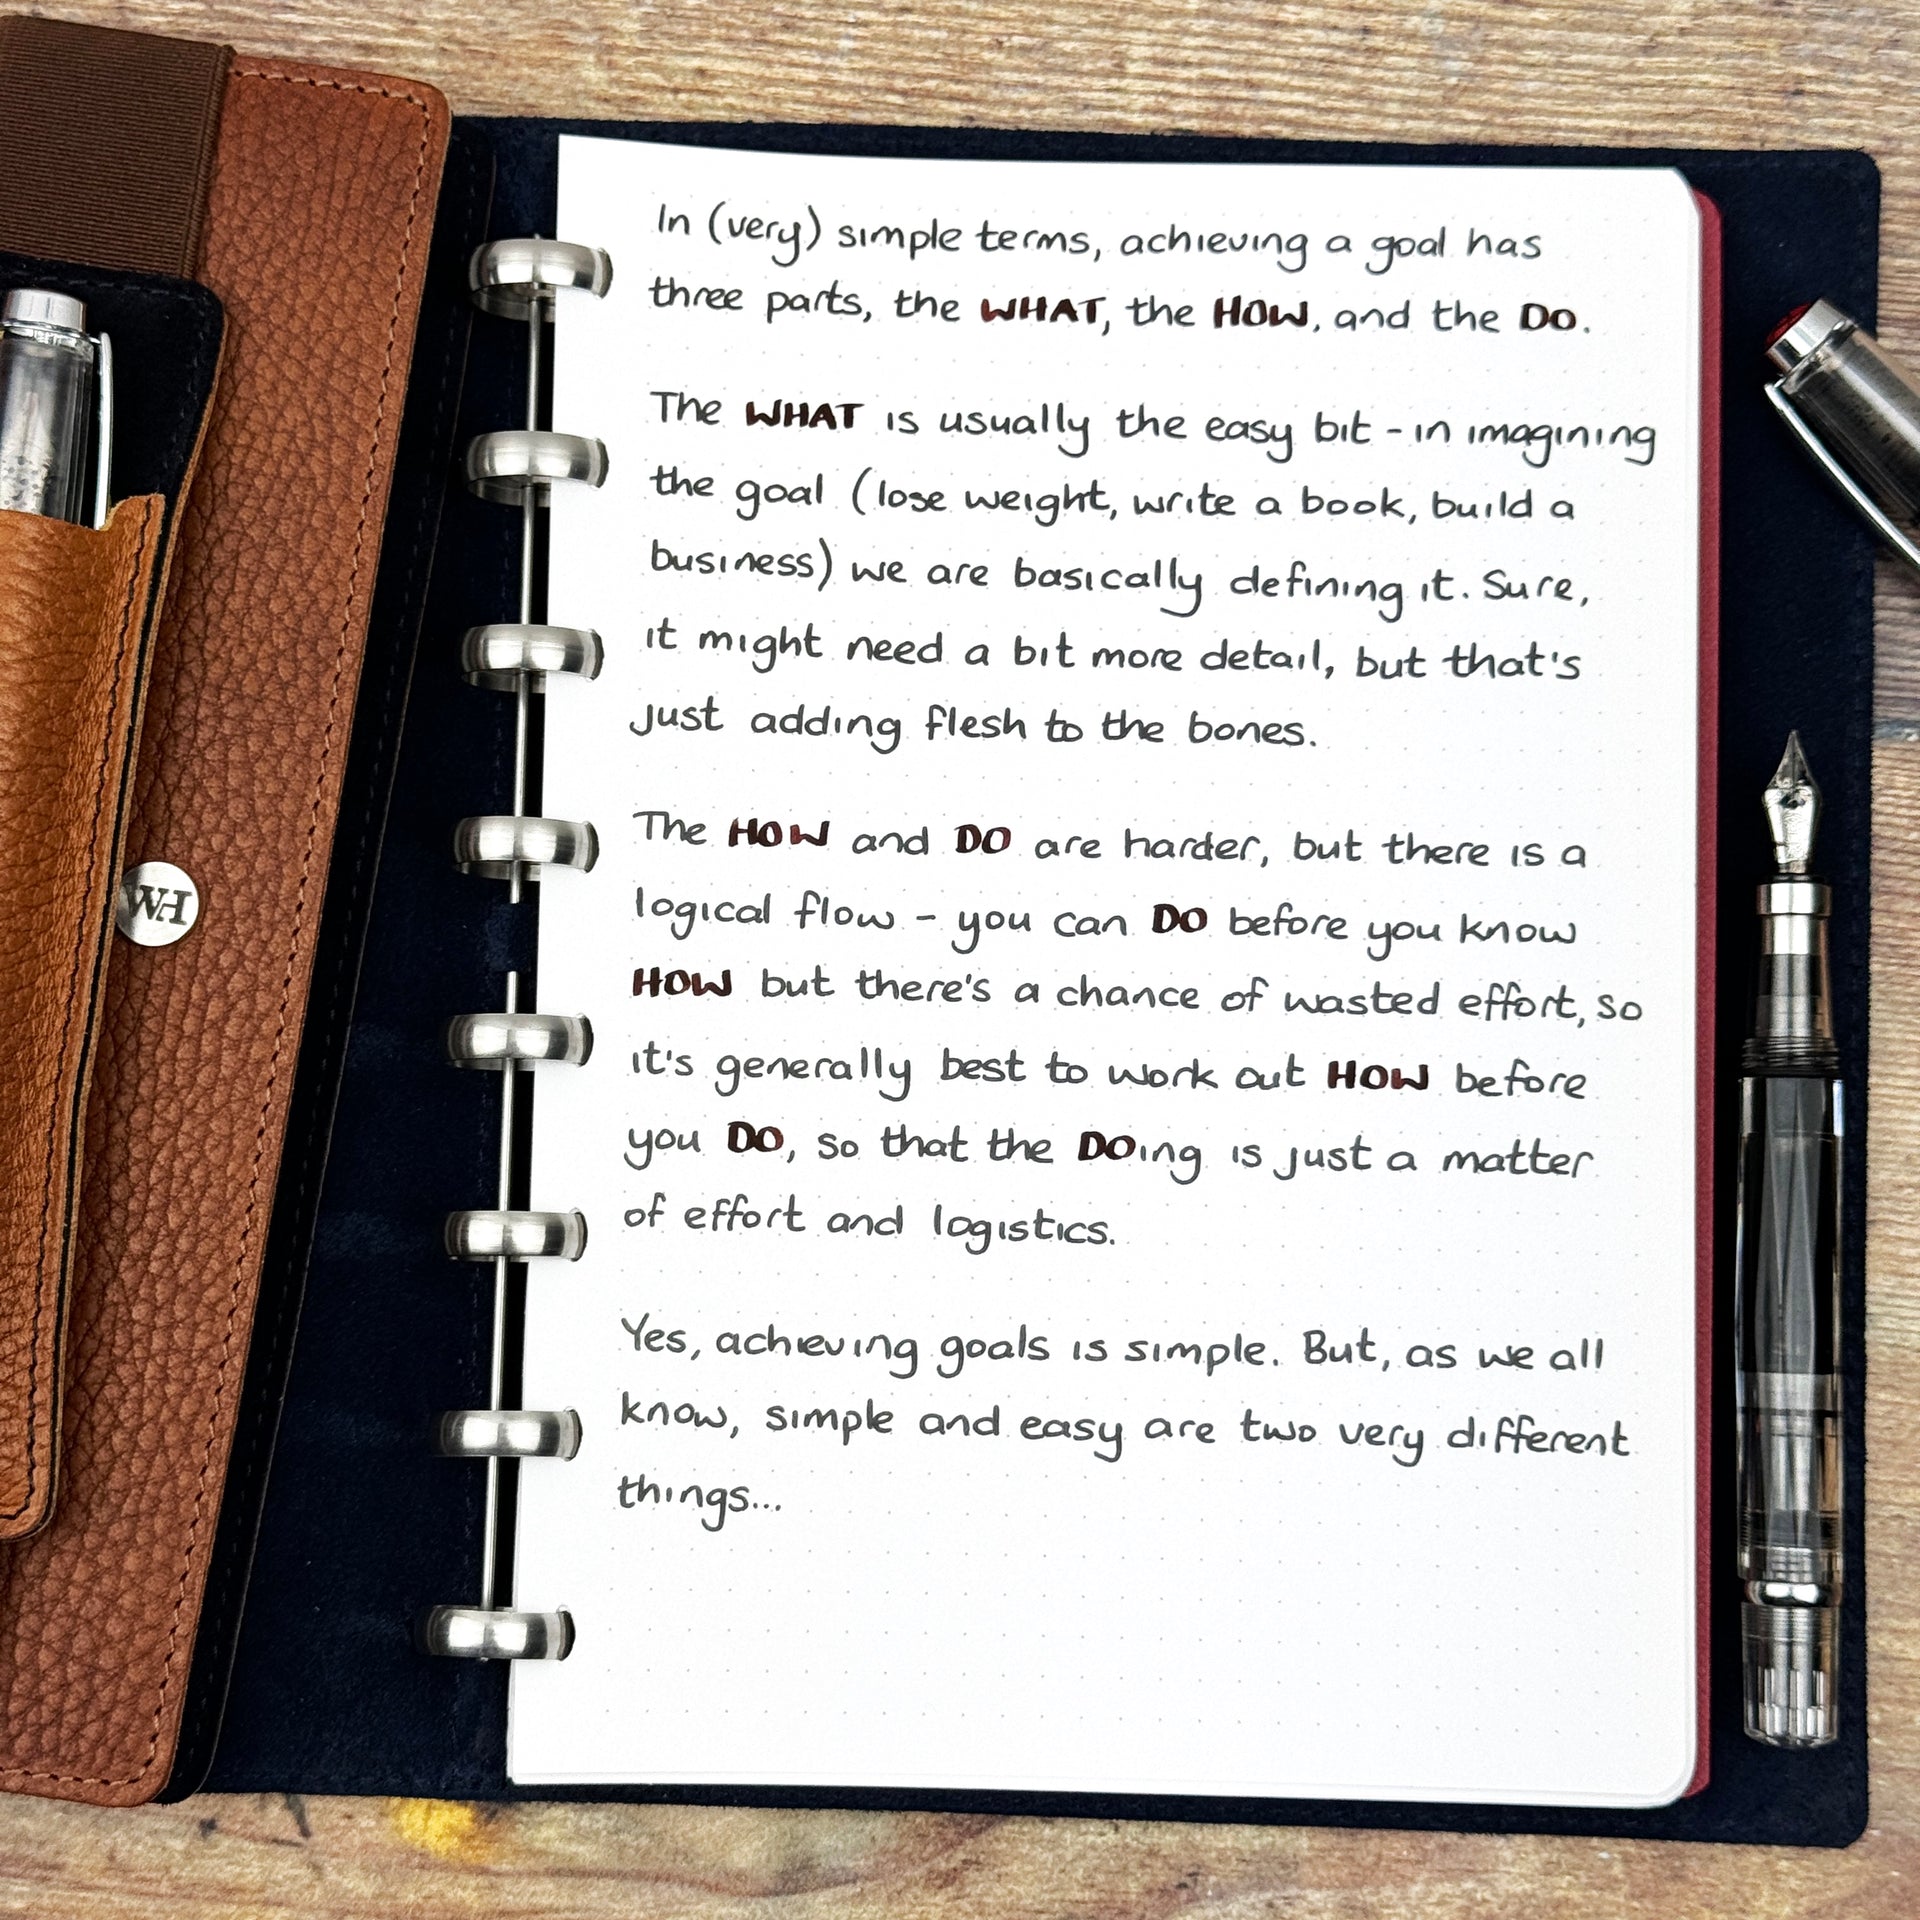 In (very) simple terms, achieving a goal has
three parts, the WHAT, the HOW, and the DO.
The WHAT is usually the easy bit - in imagining
the goal (lose weight, write a book, build a
business) we are basically defining it. Sure,
it might need a bit more detail, but that's
just adding flesh to the bones.
The HOW and DO are harder, but there is a
logical flow - you can DO before you know
HOW but there's a chance of wasted effort, so
it's generally best to work out HOW before
you DO, so that the DOing is just a matter
of effort and logistics.
Yes, achieving goals is simple. But, as we all
know, simple and easy are two very different
things...
WH